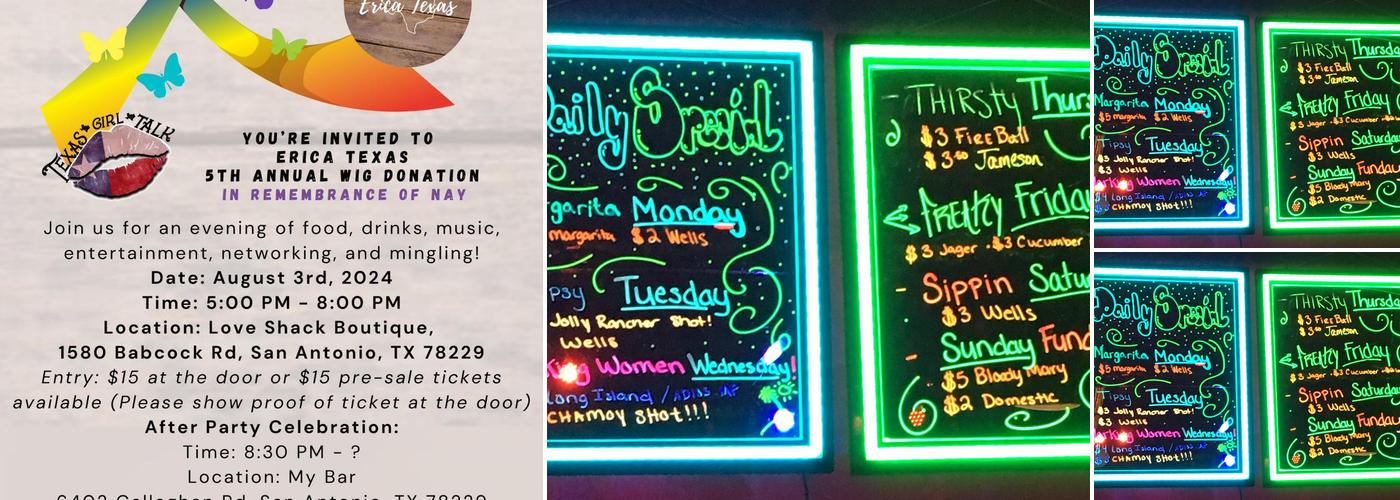 Erica Texas
TEXAS GIRL TALK
YOU'RE INVITED TO
ERICA TEXAS
5TH ANNUAL WIG DONATION
IN REMEMBRANCE OF NAY
Join us for an evening of food, drinks, music,
entertainment, networking, and mingling!
Date: August 3rd, 2024
Time: 5:00 PM - 8:00 PM
Location: Love Shack Boutique,
1580 Babcock Rd, San Antonio, TX 78229
Entry: $15 at the door or $15 pre-sale tickets
available (Please show proof of ticket at the door)
After Party Celebration:
Time: 8:30 PM - ?
Location: My Bar
6402 Callaghan Rd, San Antonio, TX 78229
Daily Special
garita Monday
margarita $2 Wells
psy Tuesday
Jolly Rancher Shot!
Wells
king Women Wednesday!
Long Island /
CHAMOY SHOT!!!
THIRSTY Thurs
$3 FireBall
$3.50 Jameson
FREAKY Friday
$3 Jager $3 Cucumber
Sippin Satur
$3 Wells
Sunday Fun
$5 Bloody Mary
$2 Domestic
Daily Special
Margarita Monday
$5 margarita $2 Wells
Tipsy Tuesday
$3 Jolly Rancher Shot!
$3 Wells
rking Women Wednesday!
$4 Long Island /
CHAMOY SHOT!!!
THIRSTY Thursda
$3 FireBall
$3.50 Jameson
FREAKY Friday
$3 Jager $3 Cucumber
Sippin Saturda
$3 Wells
Sunday Funda
$5 Bloody Mary
$2 Domestic
Daily Special
Margarita Monday
$5 margarita $2 Wells
Tipsy Tuesday
$3 Jolly Rancher Shot!
$3 Wells
rking Women Wednesday!
$4 Long Island /
CHAMOY SHOT!!!
THIRSTY Thursda
$3 FireBall
$3.50 Jameson
FREAKY Friday
$3 Jager $3 Cucumber
Sippin Saturda
$3 Wells
Sunday Funda
$5 Bloody Mary
$2 Domestic